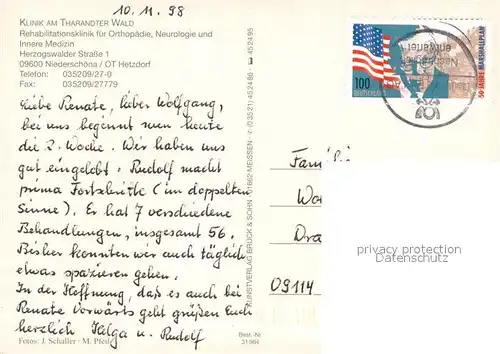 10.11.98
KLINIK AM THARANDTER WALD
Rehabilitationsklinik für Orthopädie, Neurologie und
Innere Medizin
Herzogswalder Straße 1
09600 Niederschöna / OT Hetzdorf
Telefon: 035209/27-0
Fax: 035209/27779
Liebe Renate, lieber Wolfgang,
bei uns beginnt nun heute
die 2. Woche. Wir haben uns
gut eingelebt. Rudolf macht
prima Fortschritte (im doppelten
Sinne). Er hat 7 verschiedene
Behandlungen, insgesamt 56.
Bisher konnten wir auch täglich
etwas spazieren gehen.
In der Hoffnung, daß es auch bei
Renate vorwärts geht grüßen Euch
herzlich Helga u. Rudolf
Fotos: J. Schaller · M. Pfeil
Best.-Nr
31964
KUNSTVERLAG BRÜCK & SOHN · 01662 MEISSEN · (0 35 21) 45 24 86 · 45 24 95
100
DEUTSCHLAND
50 JAHRE MARSHALLPLAN
Fami
Wa
Dra
09114
privacy protection